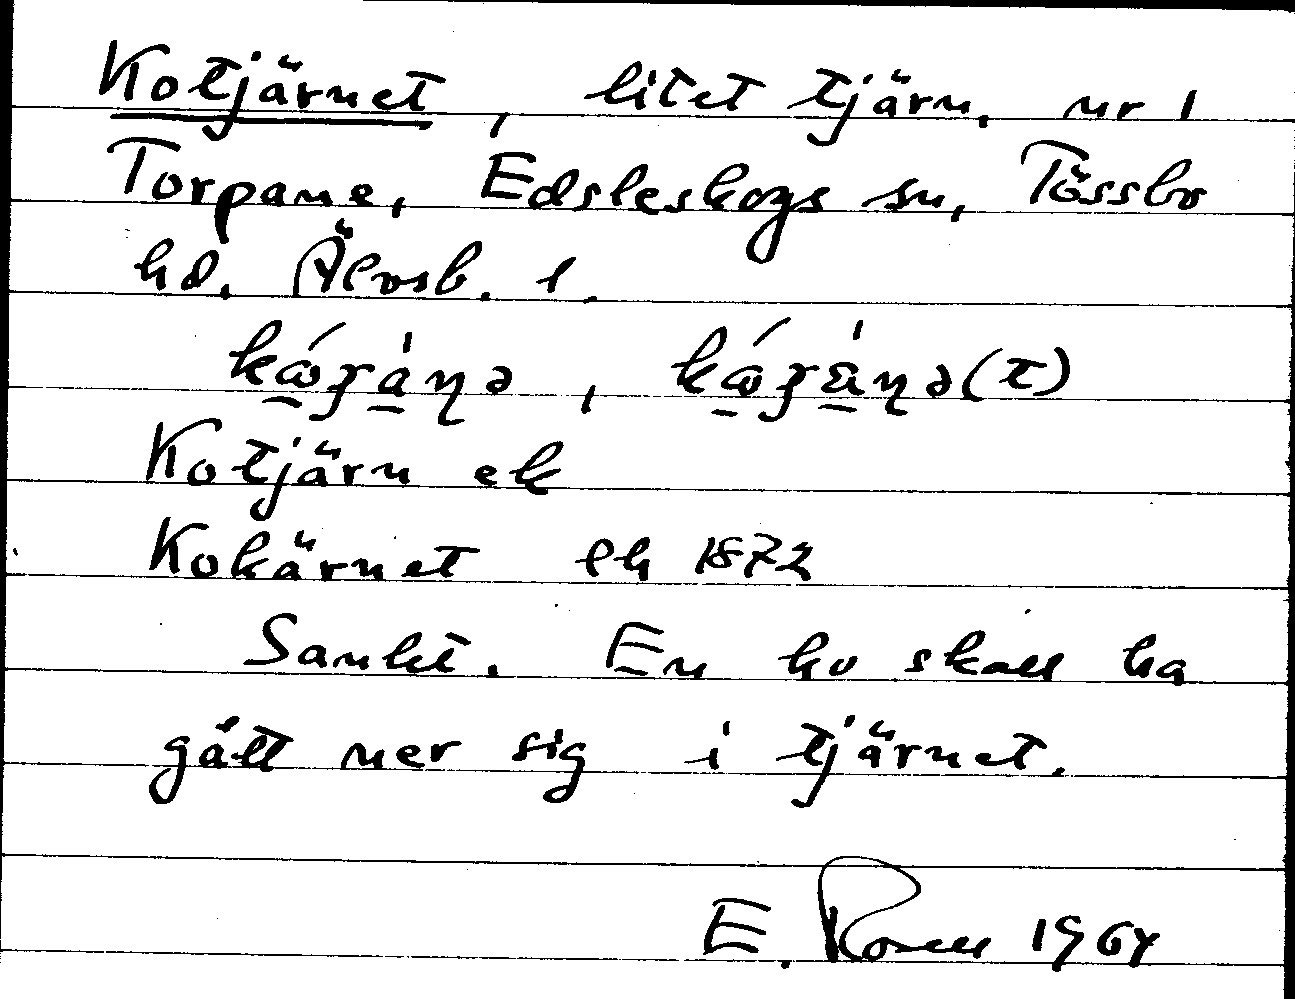 Kotjärnet, litet tjärn, nr 1
Torpane, Edsleskogs sn, Tössbo
hd. Älvsb. l.
Kotjärn ek
Kokärnet lh 1872
Sankt. En ko skall ha
gått ner sig i tjärnet.
E. Rosell 1964